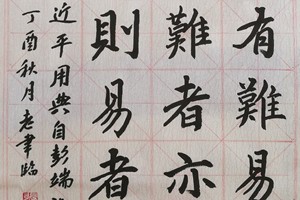 有難易
難者亦
則易者
近平用典自彭端
丁酉秋月老聿臨